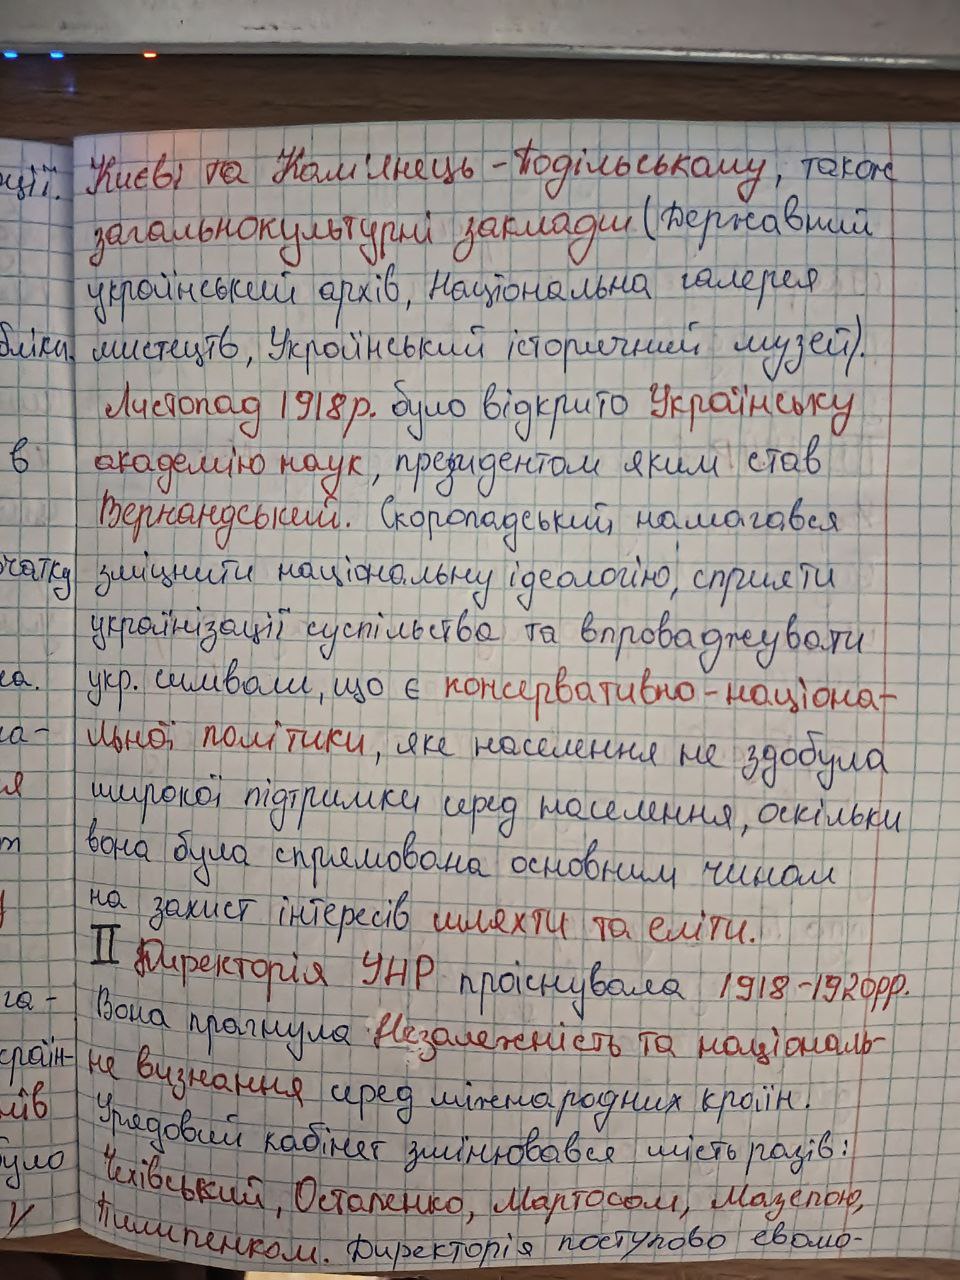 Києві та Кам'янець-Подільському, також
загальнокультурні заклади (Державний
український архів, Національна галерея
мистецтв, Український історичний музей).
Листопад 1918р. було відкрито Українську
академію наук, президентом яким став
Вернандський. Скоропадський намагався
зміцнити національну ідеологію, сприяти
українізації суспільства та впроваджувати
укр. символи, що є консервативно-націона-
льної політики, яке населення не здобула
широкої підтримки серед населення, оскільки
вона була спрямована основним чином
на захист інтересів шляхти та еліти.
II Директорія УНР проіснувала 1918-1920рр.
Вона прагнула Незалежність та націоналъ-
не визнання серед міжнародних країн.
Урядовий кабінет змінювався шість разів:
Чехівський, Остапенко, Мартосом, Мазепою,
Пилипенком. Директорія поступово еволю-
ції.
бліки.
в
чатку
са.
на-
я
т
га-
країн-
мів
було